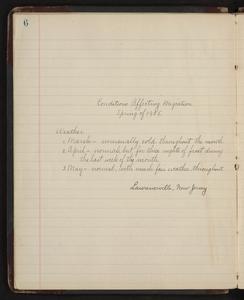 6
Conditions Affecting Migration
Spring of 1906.
Weather.
1. March - unusually cold throughout the month.
2. April - normal, but for three nights of frost during
the last week of the month.
3. May - normal, with much fair weather throughout.
Lawrenceville, New Jersey